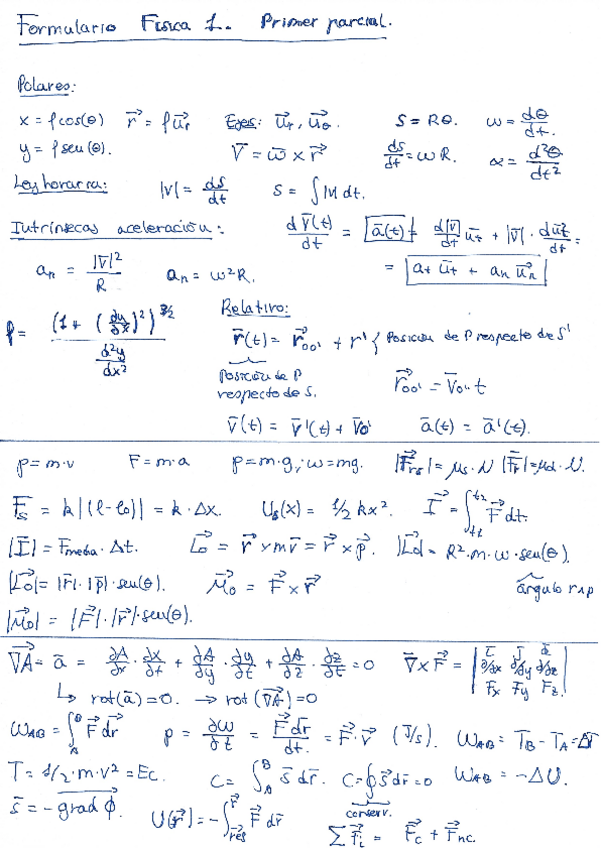 Formulario Física 1.. Primer parcial.
Polares:
x = ρcos(θ) r⃗ = ρu⃗r Ejes: u⃗r, u⃗θ. S = Rθ. ω = dθ/dt.
y = ρsen(θ). V⃗ = ω⃗ × r⃗ ds/dt = ωR. α = d²θ/dt²
Ley horaria: |v| = ds/dt S = ∫|v| dt.
Intrínsecas aceleración: dv̄(t)/dt = ā(t) = d|v̄|/dt u⃗t + |v̄| · du⃗t/dt =
an = |v̄|²/R an = ω²R. = at u⃗t + an u⃗n
Relativo:
ρ = (1 + (dy/dx)²)^3/2 / d²y/dx²
r⃗(t) = r⃗oo' + r' { Posición de P respecto de S'
Posición de P respecto de S. r⃗oo' = V⃗o' · t
v̄(t) = v̄'(t) + v̄o' ā(t) = ā'(t).
p = m·v F = m·a p = m·g; ω = mg. |F⃗rs| = μs · N |F⃗r| = μd · N.
F⃗s = k|(l - lo)| = k · Δx. Us(x) = 1/2 kx². I⃗ = ∫t1^t2 F⃗ dt.
|I⃗| = Fmedia · Δt. L⃗o = r⃗ × mv⃗ = r⃗ × p⃗. |L⃗o| = R²·m·ω·sen(θ).
|L⃗o| = |r⃗|·|p⃗|·sen(θ). M⃗o = F⃗ × r⃗ ángulo r∧p
|M⃗o| = |F⃗|·|r⃗|·sen(θ).
∇⃗A = ā = ∂A/∂x · ∂x/∂t + ∂A/∂y · ∂y/∂t + ∂A/∂z · ∂z/∂t = 0 ∇⃗×F⃗ = | i j k ; ∂/∂x ∂/∂y ∂/∂z ; Fx Fy Fz |
↳ rot(ā) = 0. → rot(∇⃗A) = 0
WAB = ∫A^B F⃗ dr⃗ p = ∂W/∂t = F⃗ dr⃗/dt. = F⃗·v⃗ (J/s). WAB = TB - TA = ΔT
T = 1/2·m·v² = Ec. C = ∫A^B s⃗ dr⃗. C = ∮ s⃗ dr⃗ = 0 WAB = -ΔU.
conserv.
s̄ = -grad ϕ. U(r⃗) = -∫res^r⃗ F⃗ dr⃗ ∑F⃗i = F⃗c + F⃗nc.